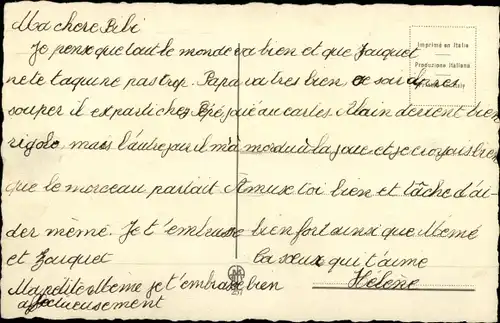 Ma chere Bibi
Je pense que tout le monde va bien et que Jacquet
ne te taquine pas trop. Papa va tres bien, ce soir apres
souper il est parti chez Pépé joué au cartes. Alain devient bien
rigolo, mais l'autre jour il m'a mordu à la joue et je croyais bien
que le morceau partait Amuse toi bien et tâche d'ai-
der mémé. Je t'embrasse bien fort ainsi que Mémé
et Jacquet la sœur qui t'aime
Hélène
Ma petite Mémé je t'embrasse bien
affectueusement
Imprimé en Italie
Produzione Italiana
Italy
251